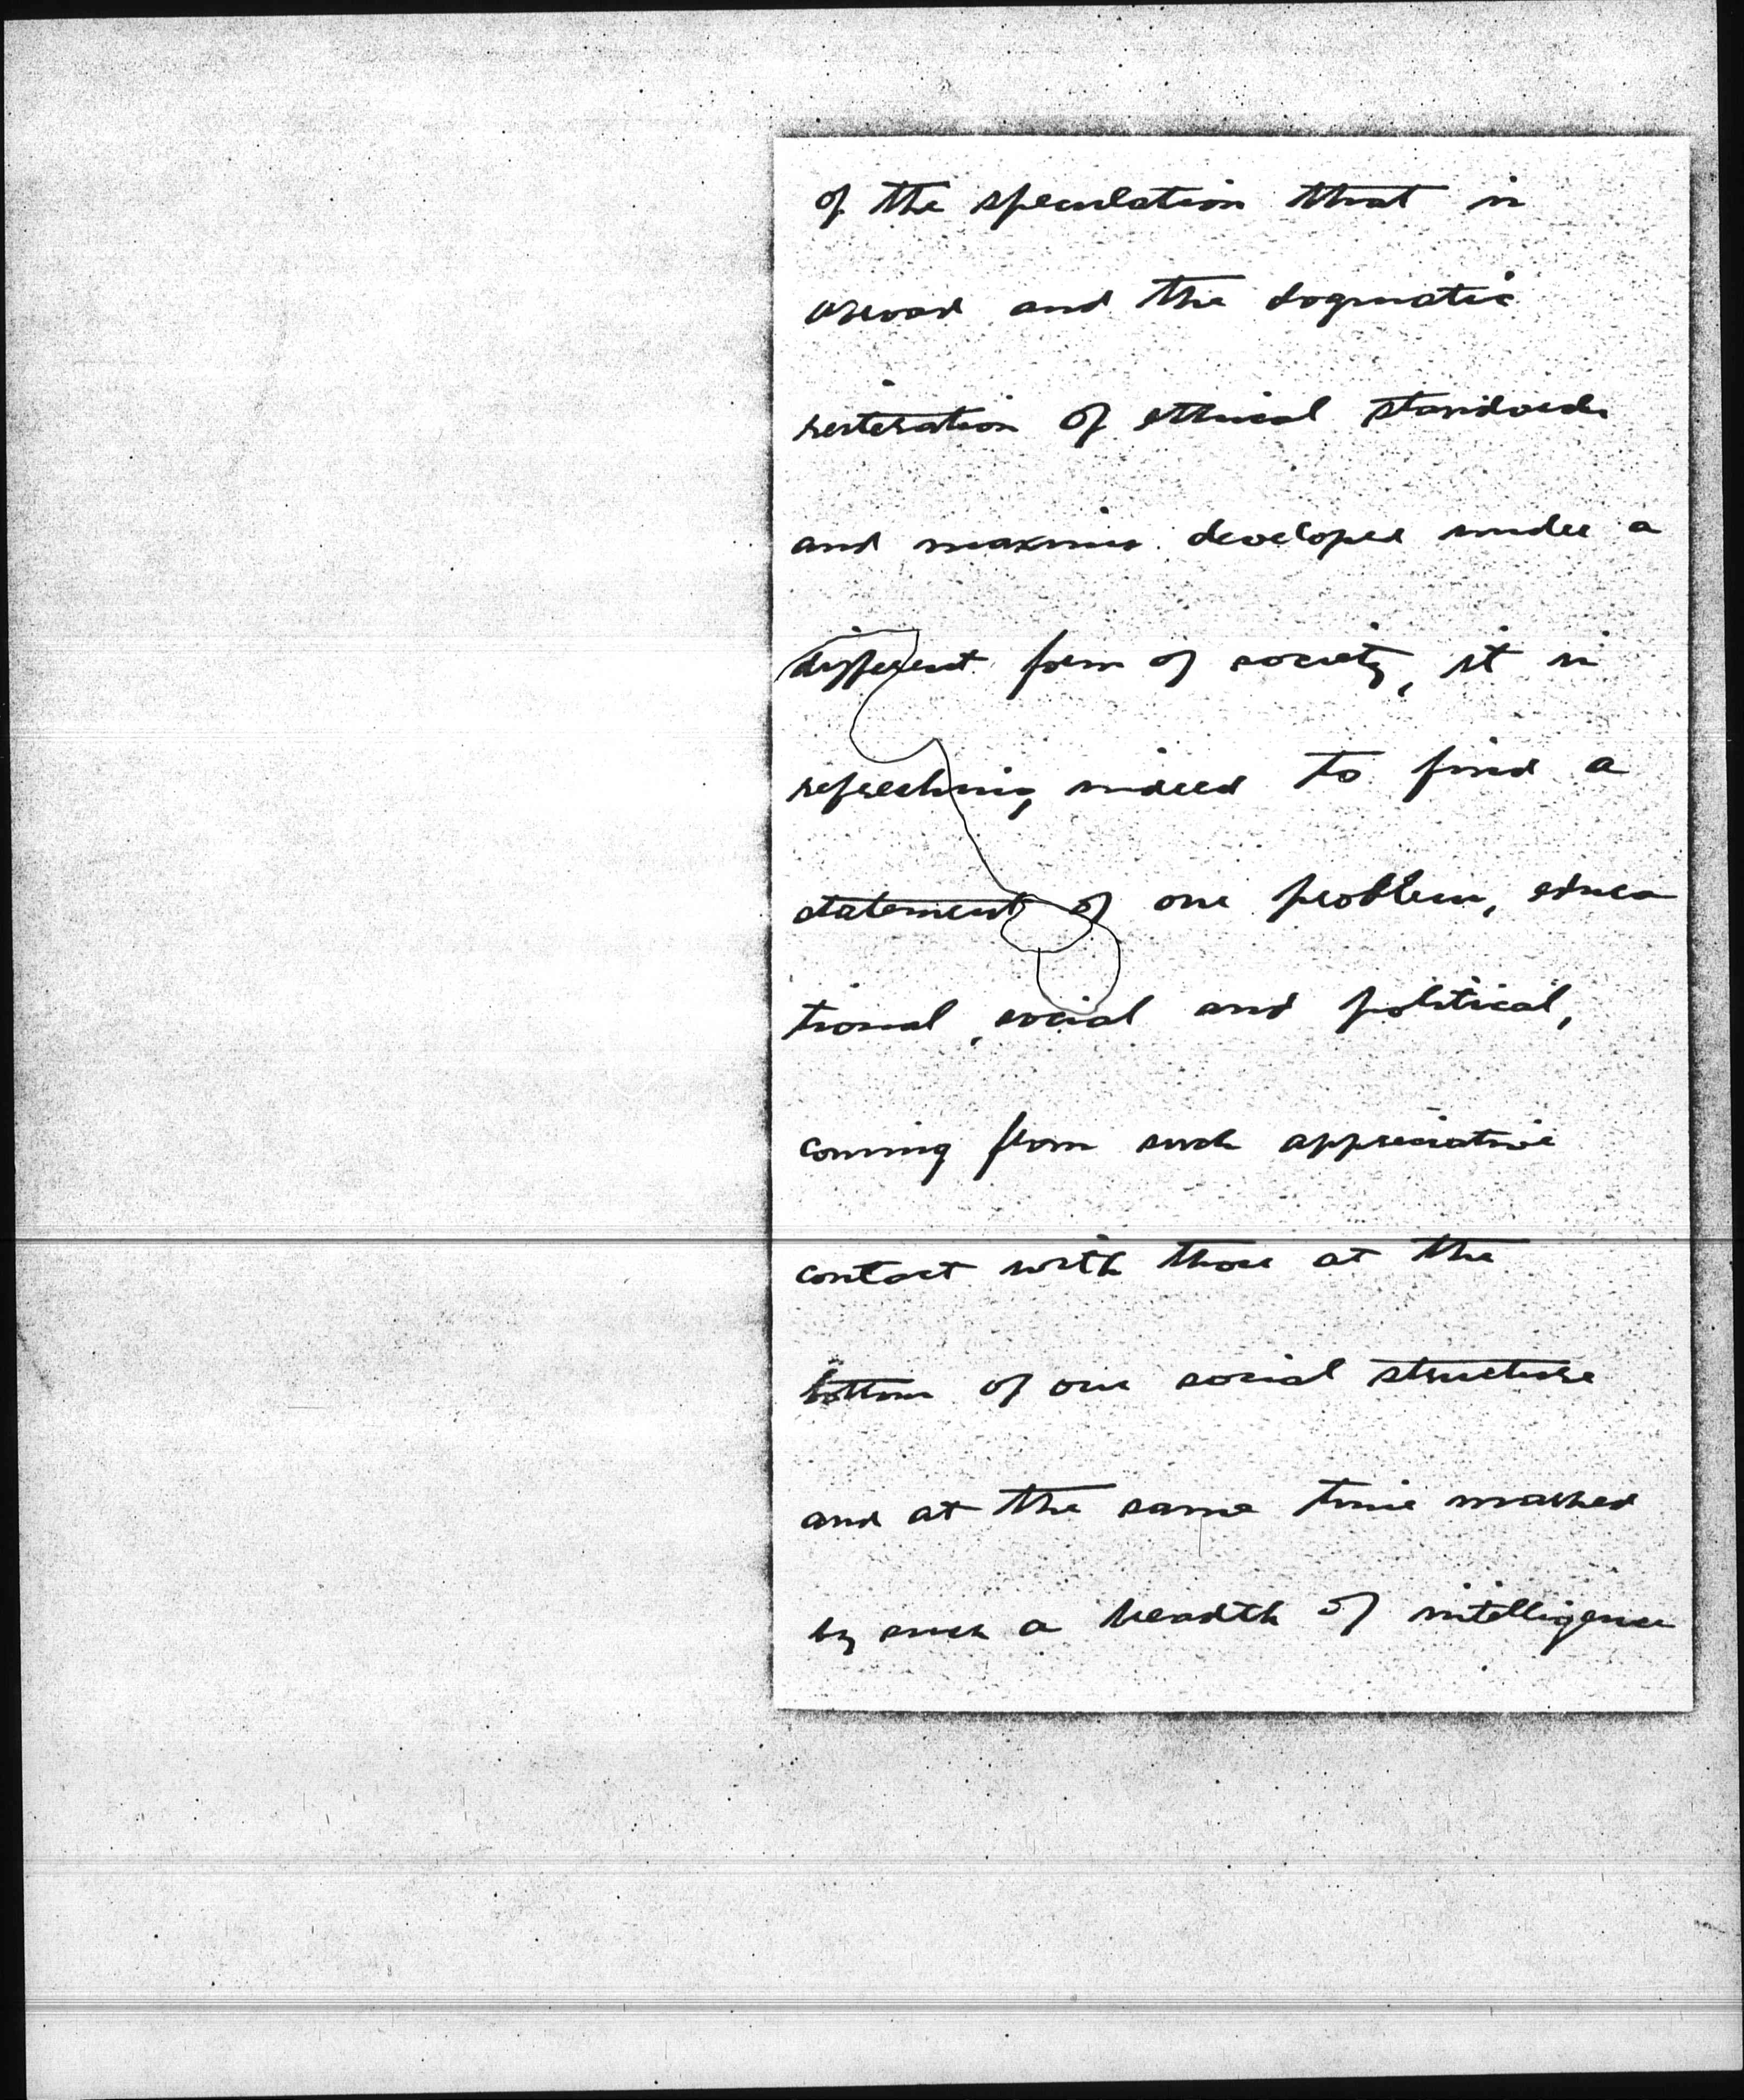 of the speculation that is
abroad and the dogmatic
reiteration of ethical standards
and maxims developed under a
different form of society, it is
refreshing indeed to find a
statement of our problem, educa
tional, social and political,
coming from such appreciative
contact with those at the
bottom of our social structure
and at the same time marked
by such a breadth of intelligence